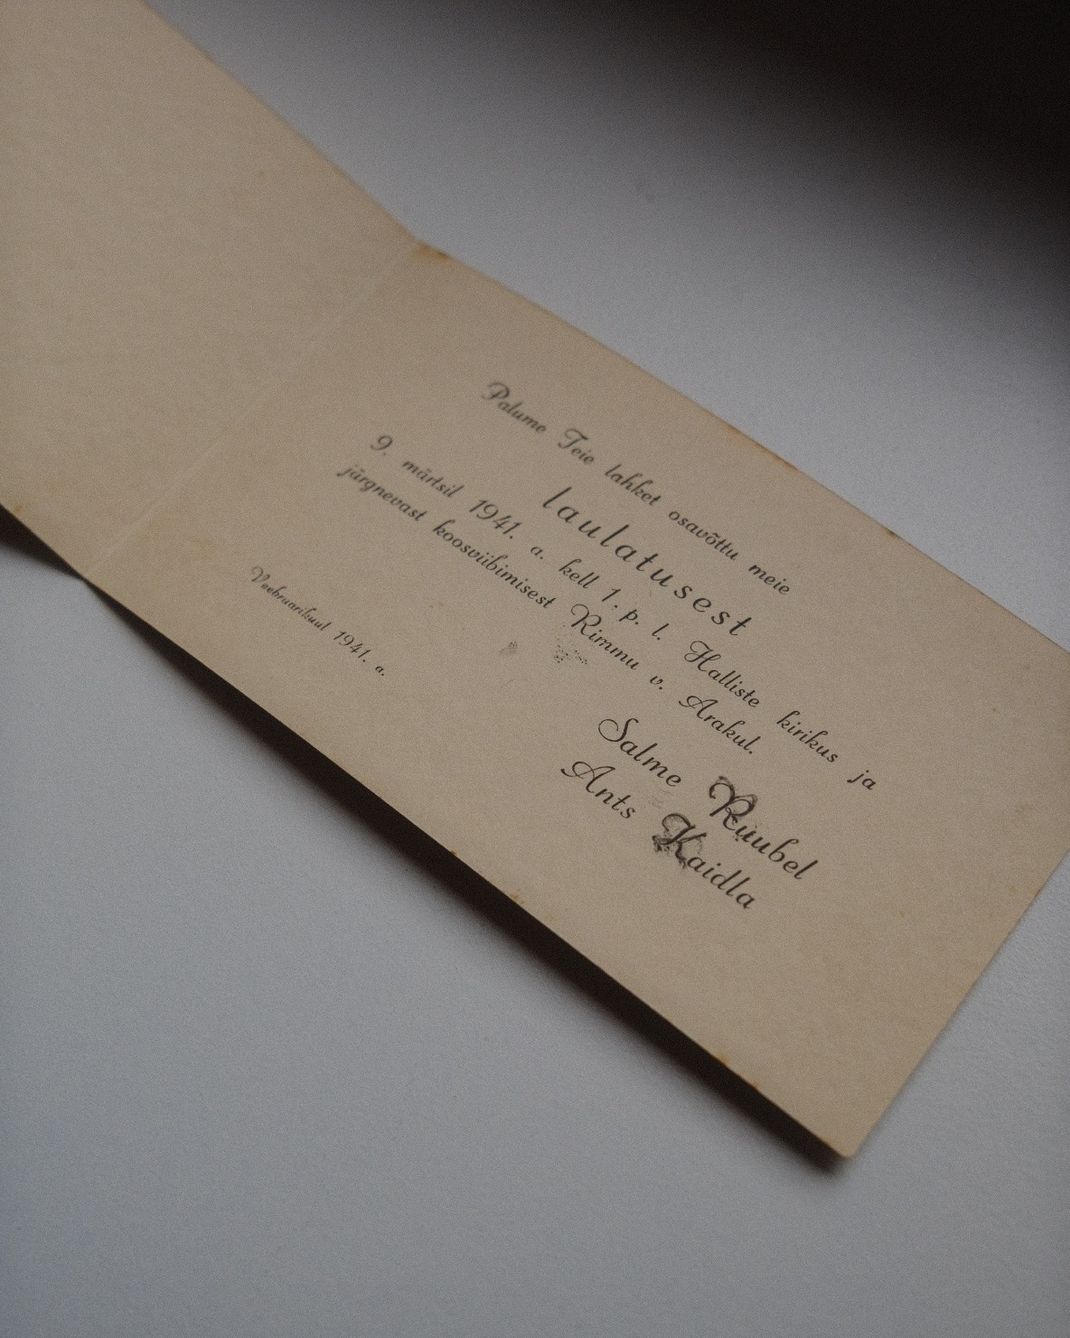 Palume Teie lahket osavõttu meie
laulatusest
9. märtsil 1941. a. kell 1. p. l. Halliste kirikus ja
järgnevast koosviibimisest Rimmu v. Arakul.
Salme Ruubel
Ants Kaidla
Veebruarikuul 1941. a.